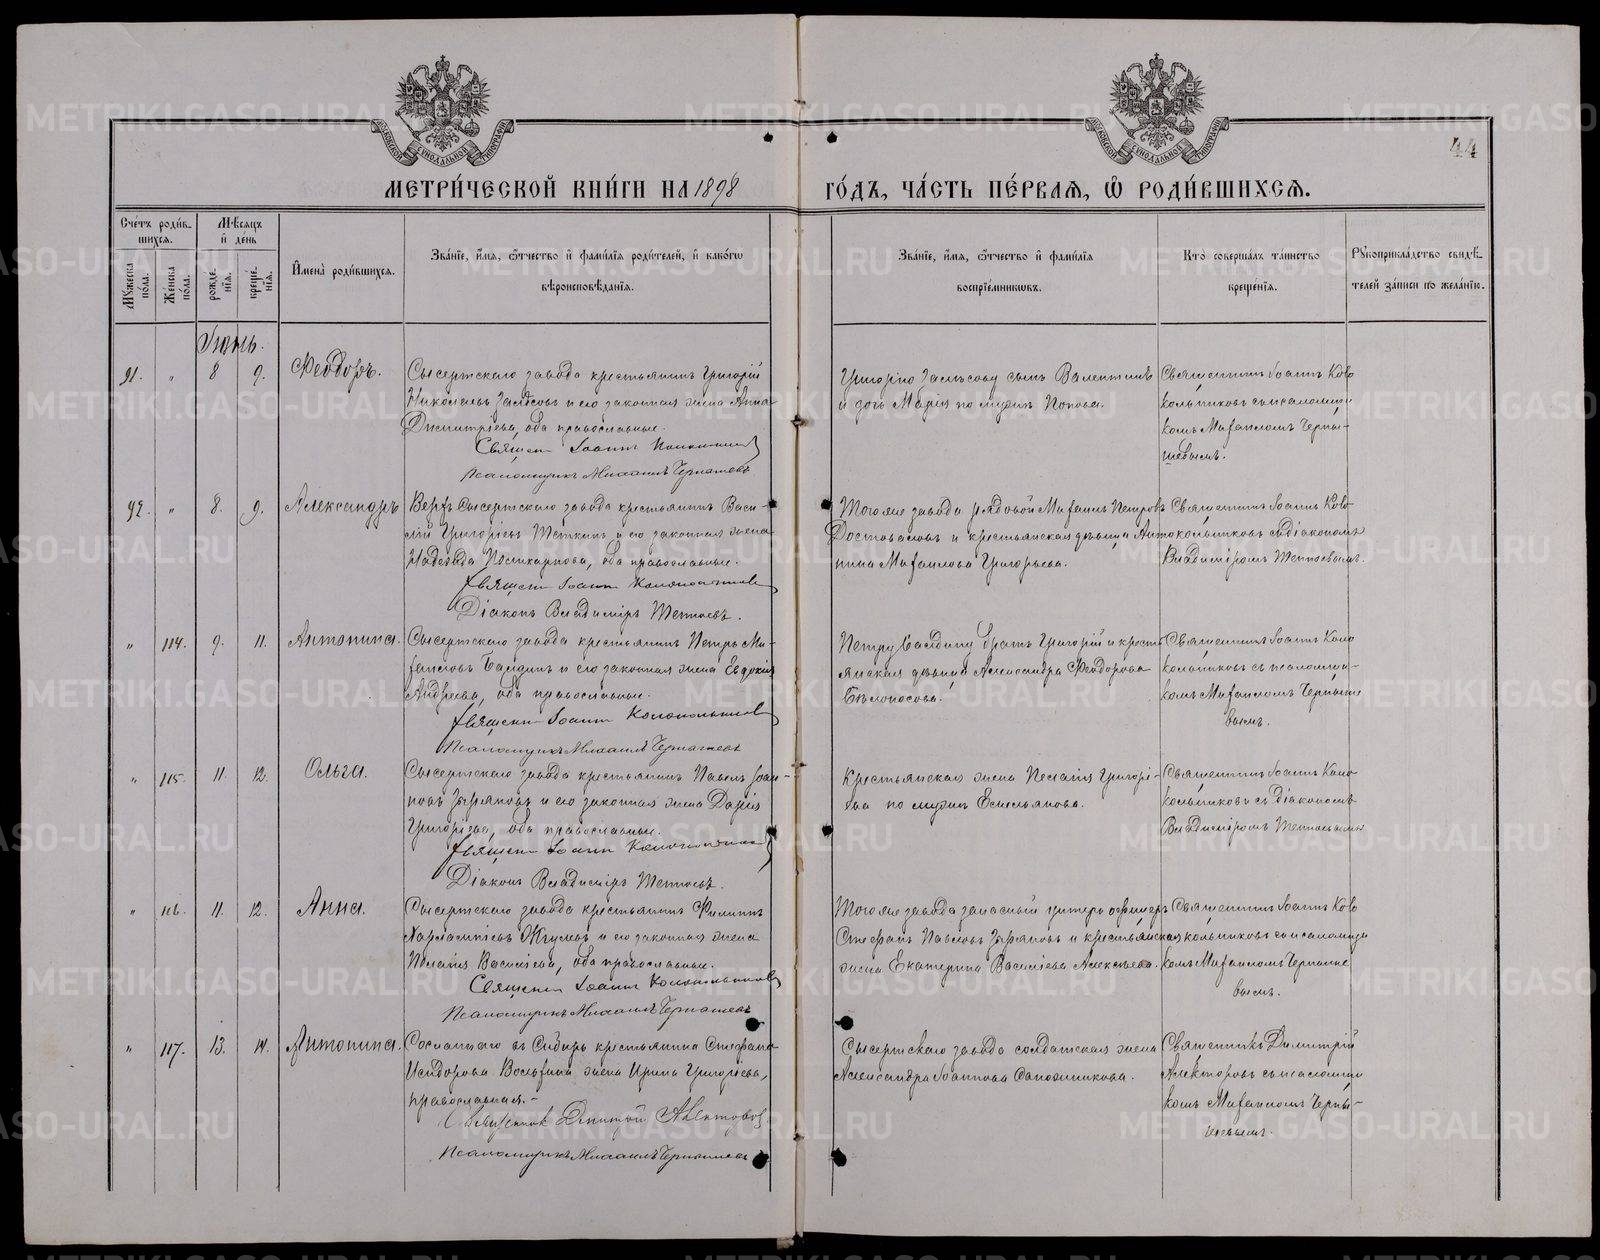 МОСКОВСКОЙ СѴНОДАЛЬНОЙ ТИПОГРАФІИ
МОСКОВСКОЙ СѴНОДАЛЬНОЙ ТИПОГРАФІИ
44
МЕТРИ́ЧЕСКОЙ КНИ́ГИ НА 1898 ГО́ДЪ, ЧА́СТЬ ПЕ́РВАѦ, Ѡ РОДИ́ВШИХСѦ.
Сче́тъ роди́в-
шихсѧ.
Мѣ́сѧцъ
и де́нь
Мꙋжеска по́ла.
Же́нска по́ла.
рожде́нїѧ.
креще́нїѧ.
Имена̀ роди́вшихсѧ.
Зва́нїе, и́мѧ, ѻ́тчество и фами́лїѧ роди́телей, и како́гѡ
вѣроисповѣ́данїѧ.
Зва́нїе, и́мѧ, ѻ́тчество и фами́лїѧ
воспрїе́мникѡвъ.
Кто̀ соверша́лъ та́инство
креще́нїѧ.
Рꙋкоприкла́дство свидѣ́-
телей за́писи по жела́нїю.
Іюнь.
91. " 8 9. Феодоръ.
Сысертскаго завода крестьянинъ Григорій
Николаевъ Заспсовъ и его законная жена Анна
Димитріева, оба православные.
Священ Іоаннъ
Псаломщикъ Михаилъ Чернышевъ
и дочь Марія по мужѣ Попова.
Священникъ Іоаннъ Коло
кольниковъ съ псаломщи
комъ Михаиломъ Черны-
шевымъ.
92. " 8. 9. Александръ
Верхъ Сысертскаго завода крестьянинъ Васи-
лій Григорьевъ Теткинъ и его законная жена
Надежда Поликарпова, оба православные.
Священ Іоаннъ Колокольниковъ
Діаконъ Владиміръ
Того же завода рядовой Михаилъ Петровъ
Достоваловъ и крестьянская дѣвица Анто
нина Михаилова Григорьева.
Священникъ Іоаннъ Коло
кольниковъ съ діакономъ
Владиміромъ
" 114. 9. 11. Антонина.
Сысертскаго завода крестьянинъ Петръ Ми-
хаиловъ Балдинъ и его законная жена Евдокія
Андреева, оба православные.
Священ Іоаннъ Колокольниковъ
Псаломщикъ Михаилъ Чернышевъ
Петру Балдину братъ Григорій и кресть
янская дѣвица Александра Феодорова
Бѣлоносова.
Священникъ Іоаннъ Коло
кольниковъ съ псаломщи-
комъ Михаиломъ Черныше
вымъ.
" 115. 11. 12. Ольга.
Сысертскаго завода крестьянинъ Павелъ Іоан-
новъ Зыряновъ и его законная жена Дарія
Григоріева, оба православные.
Священ Іоаннъ Колокольниковъ
Діаконъ Владиміръ
Крестьянская жена Пелагія Григорі-
ева по мужѣ Емельянова.
Священникъ Іоаннъ Коло-
кольниковъ съ діакономъ
Владиміромъ
" 116. 11. 12. Анна.
Сысертскаго завода крестьянинъ Филиппъ
Харлампіевъ и его законная жена
Пелагія Василіева, оба православные.
Священ Іоаннъ Колокольниковъ
Псаломщикъ Михаилъ Чернышевъ
Того же завода запасный унтеръ офицеръ
Стефанъ Павловъ Зыряновъ и крестьянская
жена Екатерина Василіева Алексѣева.
Священникъ Іоаннъ Коло
кольниковъ съ псаломщи
комъ Михаиломъ Черныше
вымъ.
" 117. 13. 14. Антонина.
Сосланнаго въ Сибирь крестьянина Стефана
Исидорова жена Ирина Григоріева,
православная.-
Священник Дмитрій Алекторов
Псаломщикъ Михаилъ Чернышевъ
Сысертскаго завода солдатская жена
Александра Іоаннова Сапожникова.
Священникъ Димитрій
Алекторовъ съ псаломщи
комъ Михаиломъ Черны-
шевымъ.
METRIKI.GASO-URAL.RU